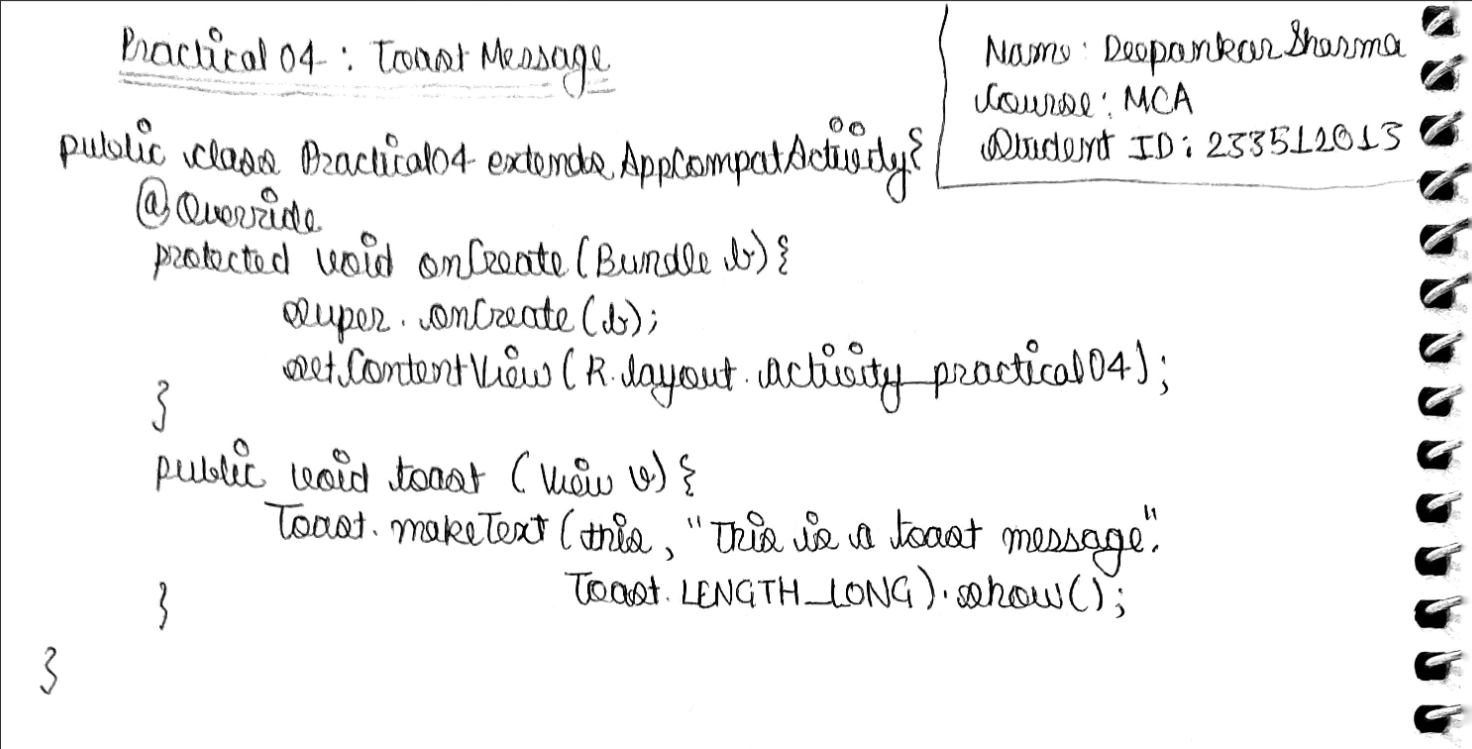 Practical 04 : Toast Message
Name : Deepankar Sharma
Course : MCA
Student ID : 233512013
public class Practical04 extends AppCompatActivity{
@Override
protected void onCreate (Bundle b) {
super.onCreate (b);
setContentView (R.layout.activity_practical04);
}
public void toast (View v) {
Toast.makeText (this, "This is a toast message".
Toast.LENGTH_LONG).show();
}
}